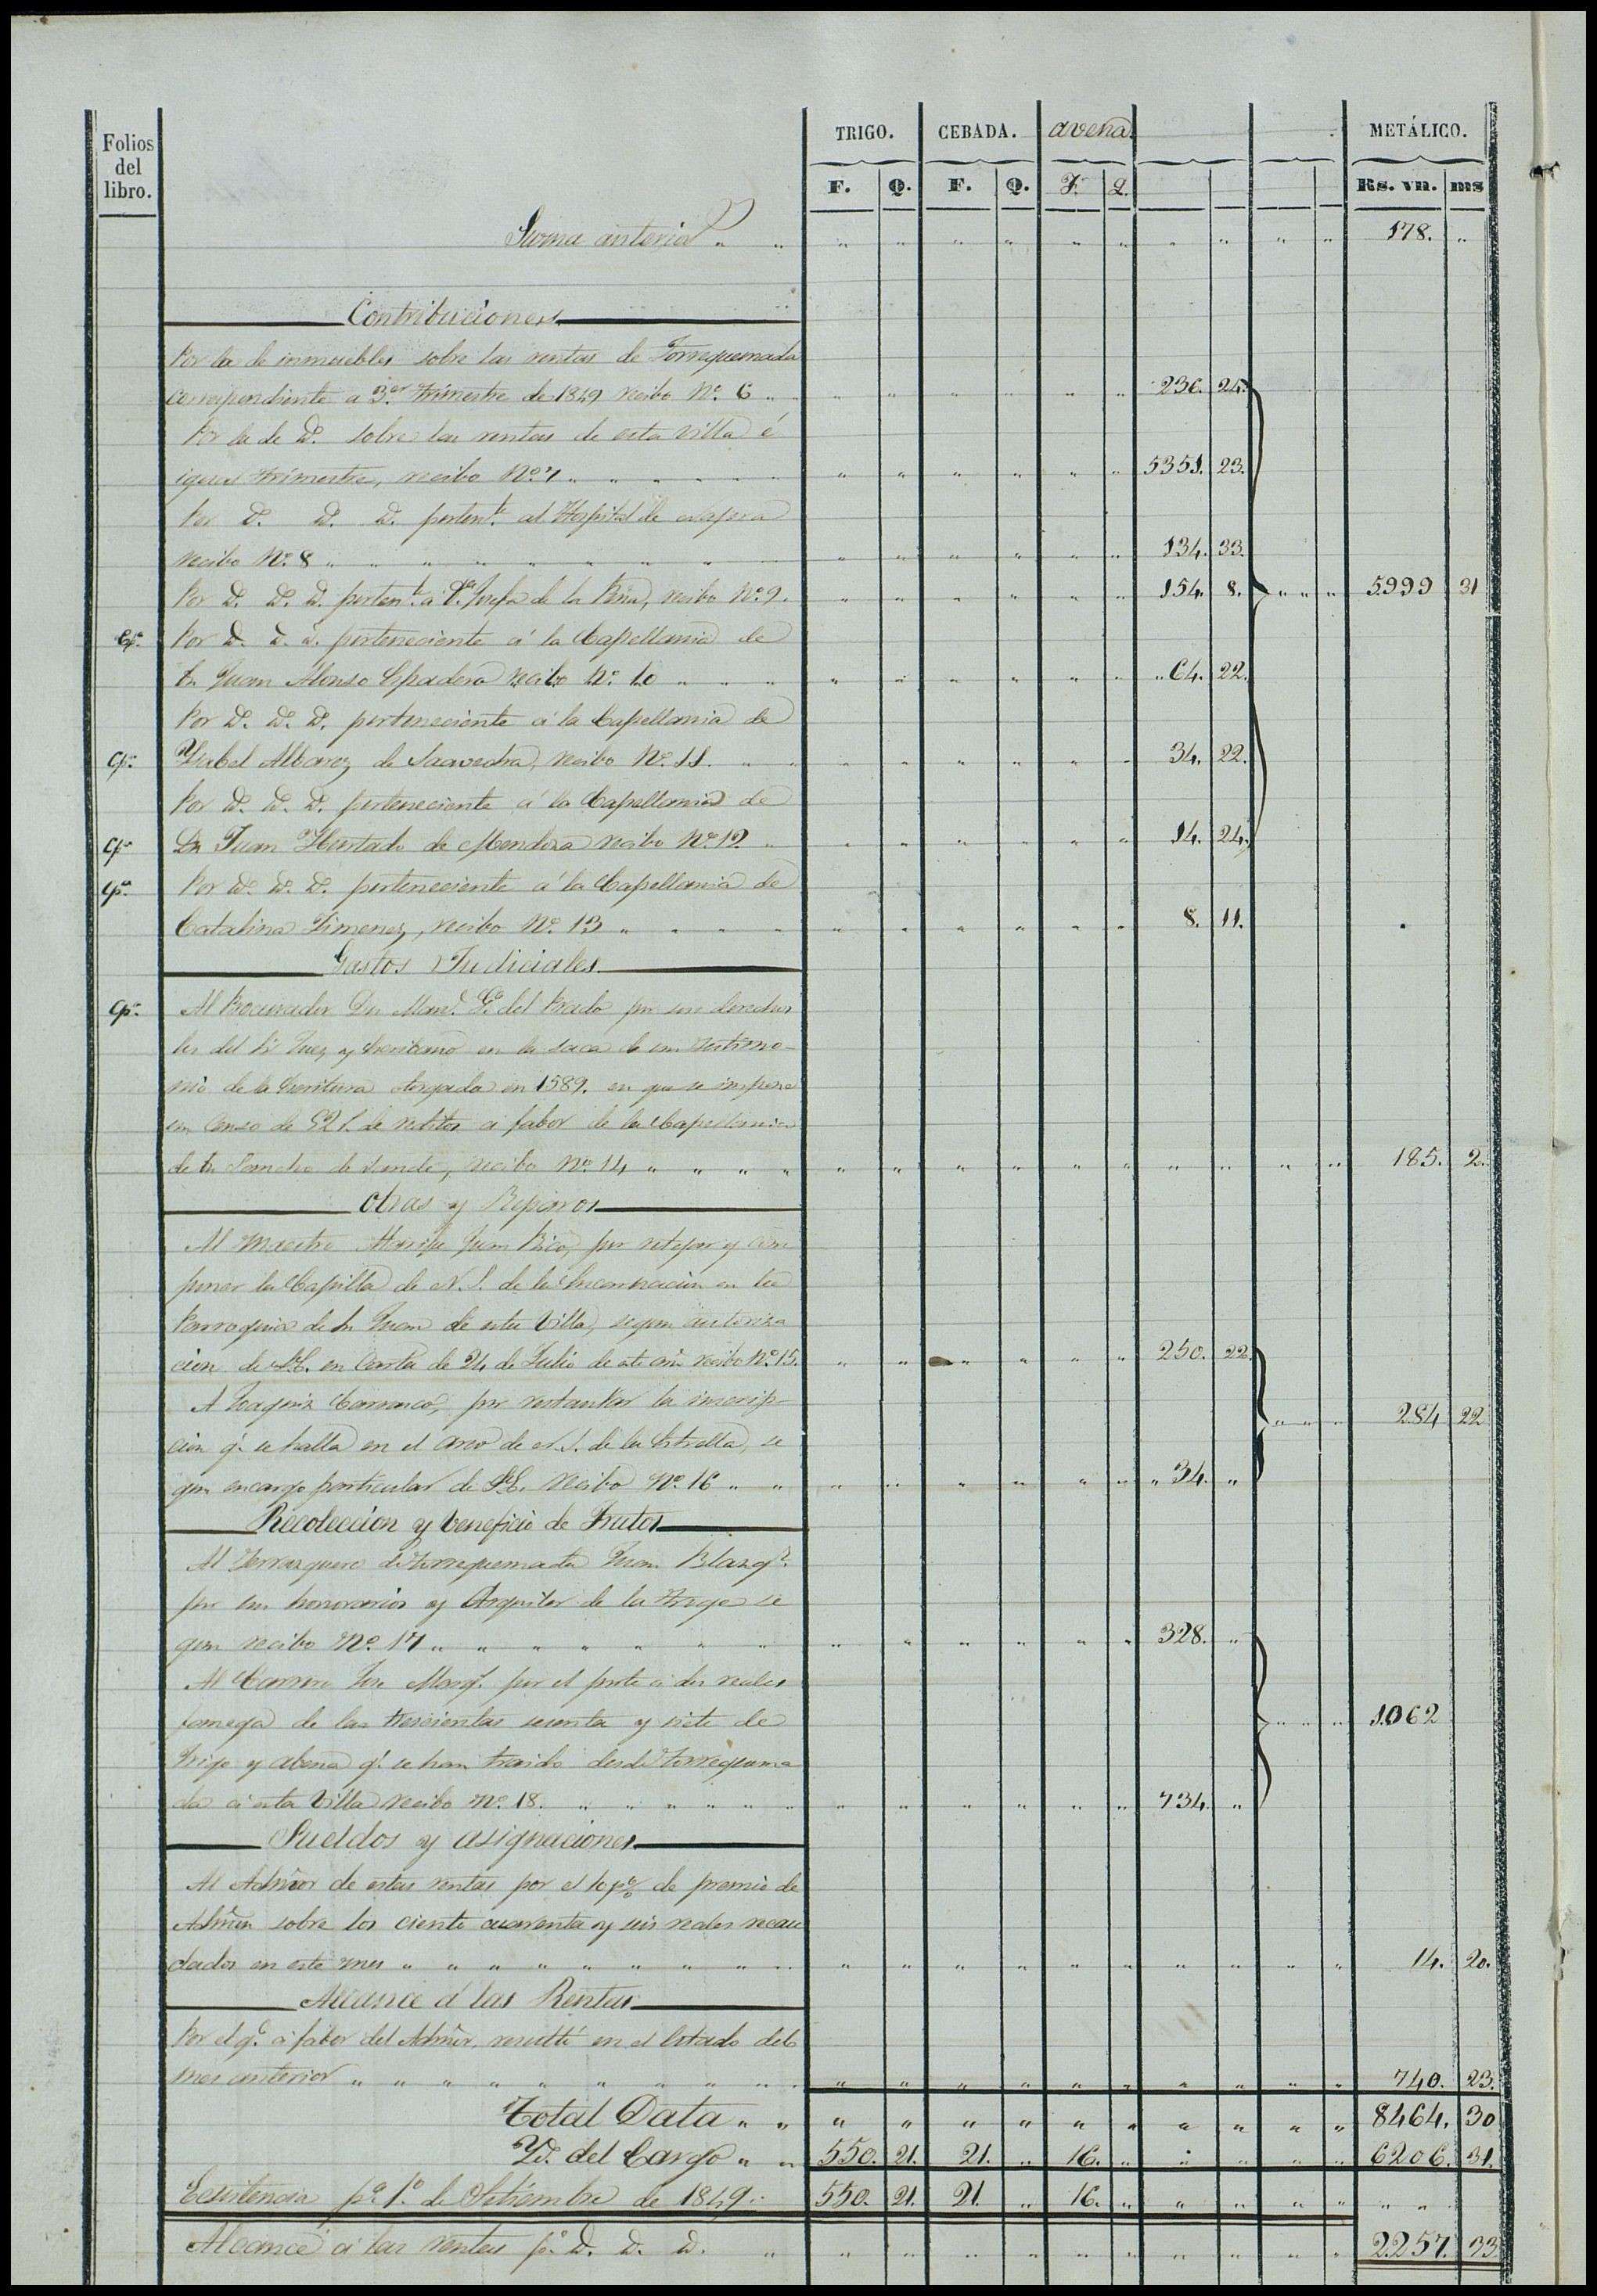 Folios del libro. TRIGO. CEBADA. avena METÁLICO.
F. Q. F. Q. F. Q. Rs. vn. ms
Suma anterior " " 178. "
Contribuciones
Por la de inmuebles sobre las rentas de Torrequemada
correspondiente a 3er trimestre de 1849 recibo Nº. 6 " 236. 24.
Por la de Yd. sobre las rentas de esta villa é
igual trimestre, recibo Nº 7 " 5351. 23.
Por Yd. Yd. Yd. pertente. al Hospital de
recibo Nº. 8 " 134. 33.
Por Yd. Yd. Yd. pertente. a Dª. Josefa de la Riva, recibo Nº. 9. 154. 8. 5999 31
Cpª. Por Yd. Yd. Yd. perteneciente á la Capellania de
Dn. Juan Alonso Espadero recibo Nº. 10 " 64. 22.
Por Yd. Yd. Yd. perteneciente á la Capellania de
Cpª. Ysabel Albarez de Saavedra, recibo Nº. 11. " 34. 22.
Por Yd. Yd. Yd. perteneciente á la Capellania de
Cpª Dn Juan Hurtado de Mendoza recibo Nº. 12 " 14. 24.
Cpª. Por Yd. Yd. Yd. perteneciente á la Capellania de
Catalina Jimenez, recibo Nº. 13 " 8. 11.
Gastos Judiciales
Cpª. Al Procurador Dn Manl. Gª del Prado por sus derechos
los del Sr Juez y Escribano en la saca de un testimo-
nio de la Escritura otorgada en 1589. en que se impuso
un censo de 521. de reditos a fabor de la Capellania
de Dn Sancho de Sande, recibo Nº 14 " 185. 2.
Obras y Reparos
Al Maestro Alarife Juan Rico, por retejar y com
poner la Capilla de N. S. de la Encarnacion en la
Parroquia de Sn Juan de esta Villa, segun autoriza
cion de S.E. en Carta de 24 de Julio de este año recibo Nº. 15. 250. 22.
A Joaquin Carrasco, por restaurar la inscrip-
cion q. se halla en el arco de N. S. de la Estrella, se 284 22
gun encargo particular de S.E. recibo Nº. 16 " 34. "
Recoleccion y beneficio de Frutos
Al Terrazguero de Torrequemada Juan Blazqz.
por sus honorarios y Alquiler de la Troge se
gun recibo Nº. 17 " 328. "
Al Carrero José Marqz. por el porte á dos reales
fanega de las trescientas sesenta y siete de 1.062
trigo y abena q. se han traido desde Torrequema
da á esta Villa recibo Nº. 18. " 734. "
Sueldos y asignaciones
Al Admor de estas rentas por el 10 p% de premio de
Admon sobre los ciento cuarenta y seis reales recau
dados en este mes " 14. 20.
Alcance á las Rentas
Por el q. á fabor del Admor. resultó en el Estado del
mes anterior " 740. 23.
Total Data " " 8464. 30
Yd. del Cargo " 550. 21. 21. " 16. " 6206. 31.
Existencia pª. 1º. de Setiembre de 1849. 550. 21. 21. " 16. "
Alcance á las rentas pª. Yd. Yd. Yd. " 2257. 33.